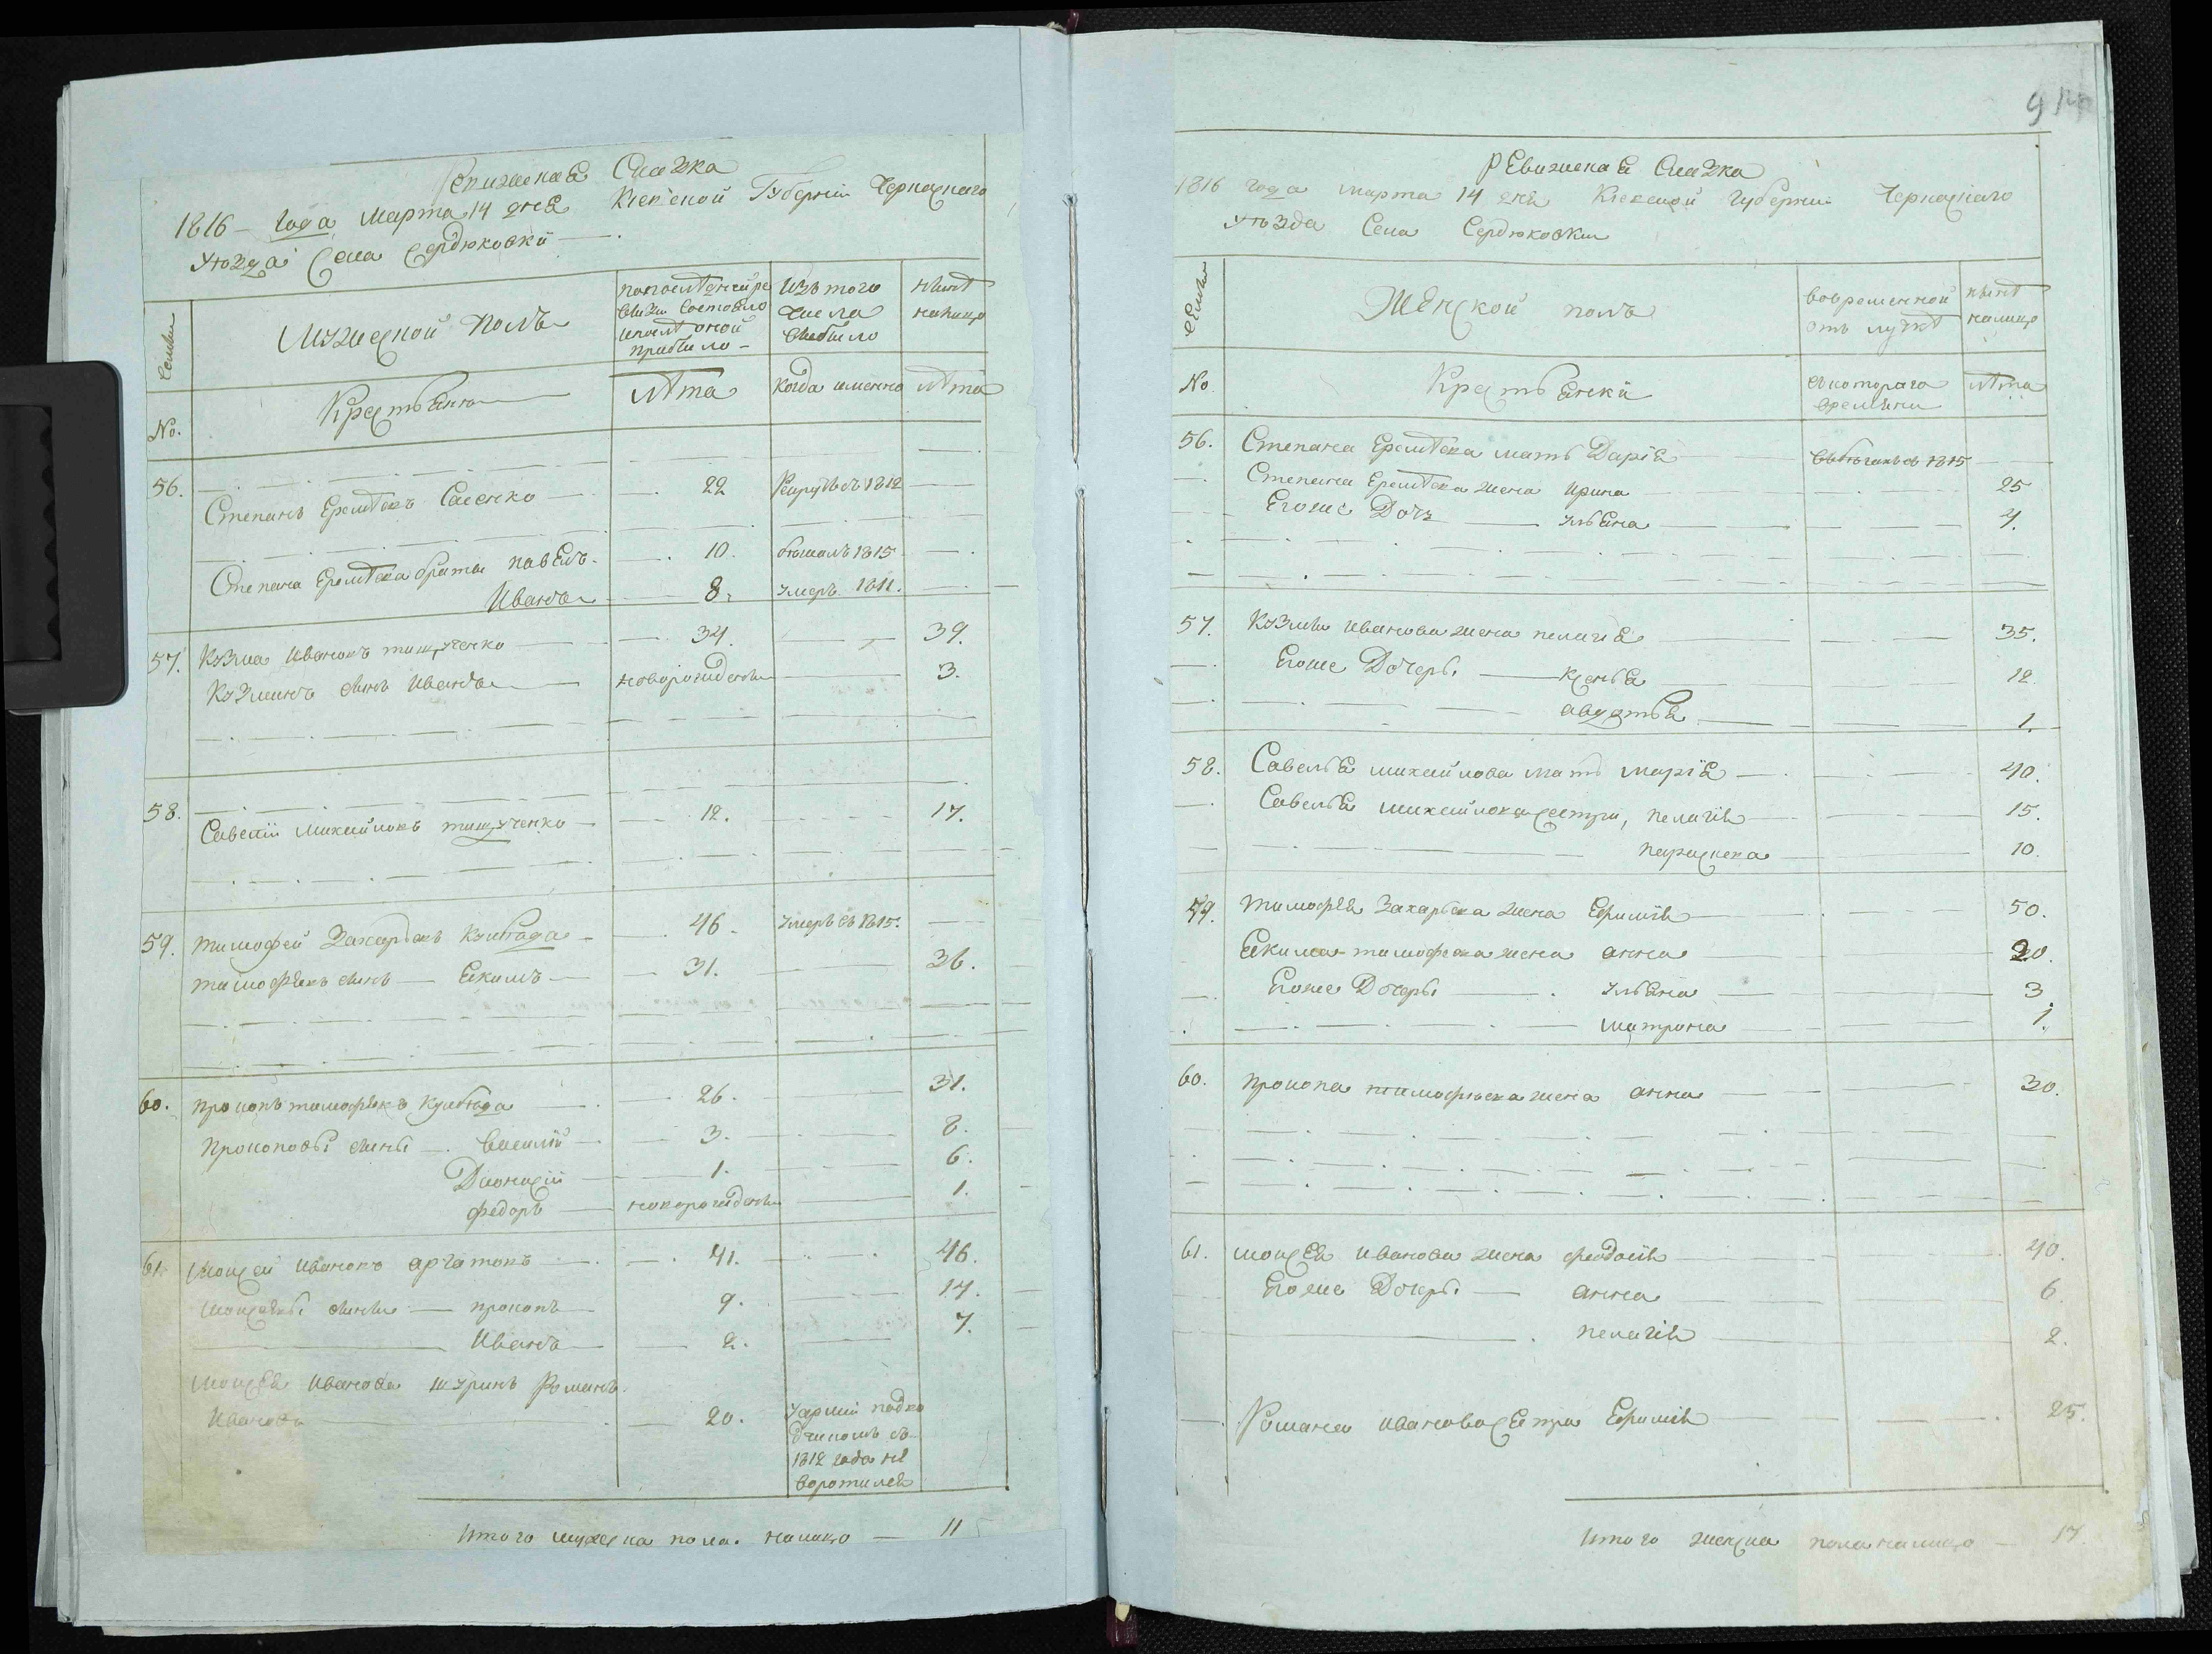 Ревижская Сказка
1816 года Марта 14 дня Киевской Губернїи Черкаскаго
уѣзда Села Сердюковки
Семьи
Мужеской полъ
попослѣдней ре
визїи состояло
ипослѣ оной
прибыло
Изъ того
числа
выбыло
нынѣ
налицо
No.
Крестьяне
лѣта
когда имянно
лѣта
56.
Степанъ Еремѣевъ Саенко 22 Рекрутъ съ 1812
Степана Еремѣева братья павелъ 10. бѣжалъ 1815
Иванъ 8. умеръ 1811.
57. Козма Ивановъ тищученко 34. 39.
Козминъ сынъ Иванъ новорожденъ 3.
58.
Савелїй михайловъ тищученко 12. 17.
59. тимофей Захарьевъ Кулбѣда 46. умеръ съ 1815.
тимофѣевъ сынъ Екимъ 31. 36.
60. прокопъ тимофѣевъ Кулбѣда 26. 31.
Прокоповы сыны Василїй 3. 8.
Дионисїй 1. 6.
федоръ новорожденъ 1.
61. Моисей Ивановъ 41. 46.
Моисеевы сыны прокопъ 9. 14.
Иванъ 2. 7.
Моисея Иванова шуринъ Романъ
Ивановъ 20.
1812 года не
воротился
Итого мужеска пола налицо 11
Ревижская Сказка
1816 года марта 14 дня Киевской губернїи Черкаскаго
уѣзда Села Сердюковки
Семьи
Женской полъ
вовременной
отлучкѣ
нынѣ
налицо
No.
Крестьянки
съкотораго
времяни
лѣта
56. Степана Еремѣева мать Дарїя 1815
Степана Еремѣева жена Ирина 25
Егоже Дочь ульяна 4.
57. Козмы Иванова жена пелагия 35.
Егоже Дочери Ксенья 12
авдотья 1.
58. Савелья михайлова мать марїя 40.
Савелья михайлова сестры, пелагїя 15.
параскева 10.
59. тимофѣя Захарьева жена Ефимїя 50.
Екима тимофеева жена анна 30.
Егоже Дочери ульяна 3
матрона 1.
60. прокопа тимофѣева жена анна 30.
61. моисея Иванова жена феодосїя 40.
Егоже Дочери анна 6
пелагїя 2.
Романа Иванова сестра Ефимїя 25.
Итого женска пола налицо 17